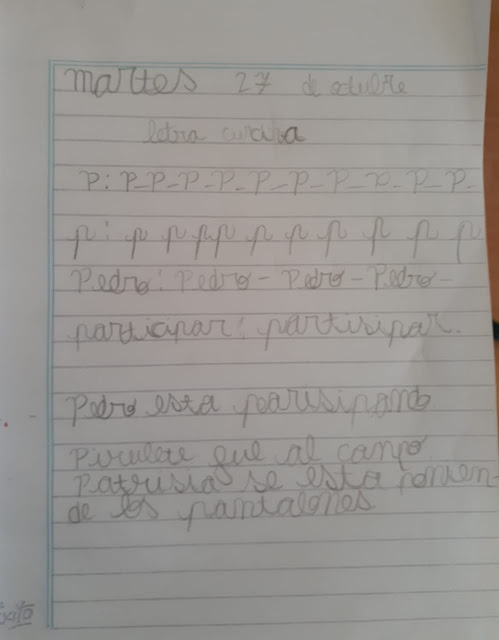 martes 27 de octubre
letra cursiva
P: P-P-P-P-P-P-P-P-P-P-
p: p p p p p p p p p p p
Pedro: Pedro - Pedro - Pedro -
participar: partisipar.
Pedro esta parisipando
al campo
Patrusia se esta ponien-
de los pantalones